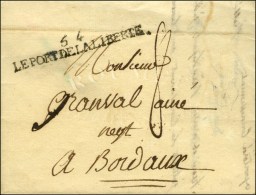 54
LE PORT DE LA LIBERTÉ
Monsieur
granval aine
negt
a Bordeaux